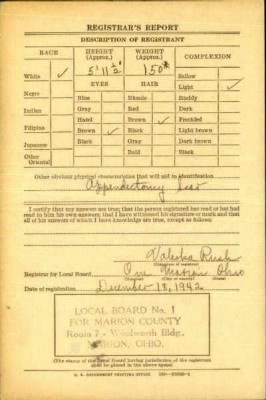 REGISTRAR'S REPORT
DESCRIPTION OF REGISTRANT
RACE HEIGHT (Approx.) WEIGHT (Approx.) COMPLEXION
5' 11 1/2" 150# Sallow
White ✓ EYES HAIR Light ✓
Negro Blue Blonde Ruddy
Indian Gray Red Dark
Filipino Hazel Brown ✓ Freckled
Japanese Brown ✓ Black Light brown
Other Oriental Black Gray Dark brown
Bald Black
Other obvious physical characteristics that will aid in identification
Appendectomy Scar
I certify that my answers are true; that the person registered has read or has had
read to him his own answers; that I have witnessed his signature or mark and that
all of his answers of which I have knowledge are true, except as follows:
Rush
Registrar for Local Board One Marion Ohio
Date of registration December 18, 1942
LOCAL BOARD No. 1
FOR MARION COUNTY
Room 7 - Woolworth Bldg.
MARION, OHIO.
(The stamp of the Local Board having jurisdiction of the registrant
shall be placed in the above space.)
U. S. GOVERNMENT PRINTING OFFICE